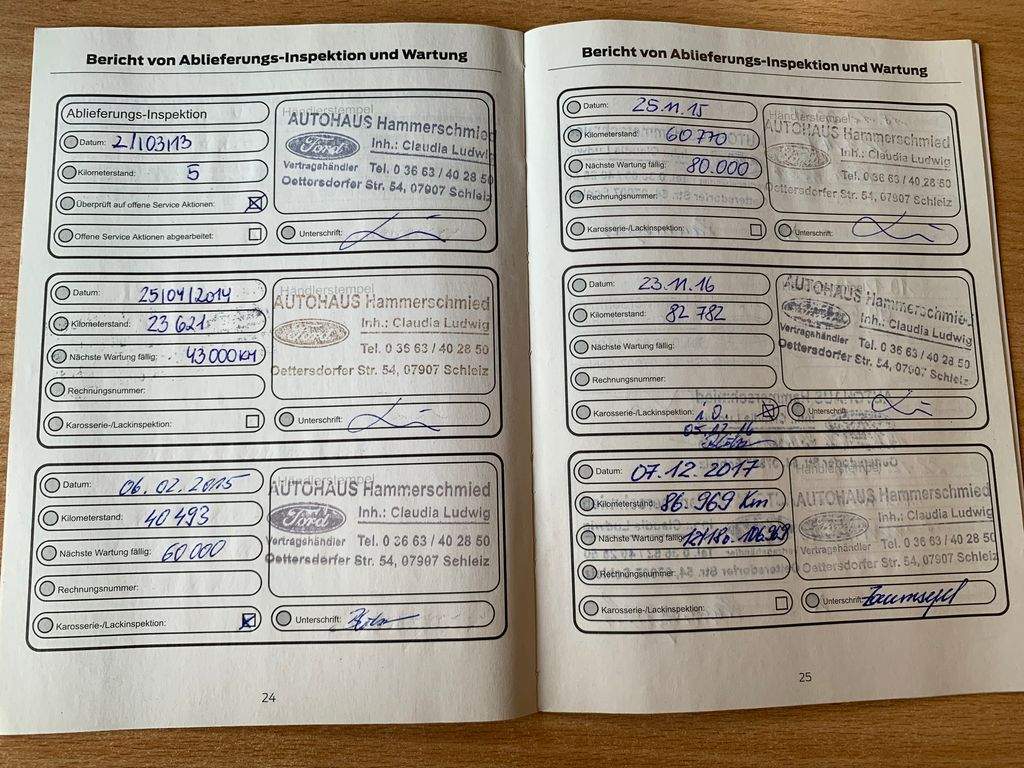 Bericht von Ablieferungs-Inspektion und Wartung
Ablieferungs-Inspektion
Datum: 21/03/13
Kilometerstand: 5
Überprüft auf offene Service Aktionen:
Offene Service Aktionen abgearbeitet:
Händlerstempel
AUTOHAUS Hammerschmied
Ford
Inh.: Claudia Ludwig
Vertragshändler Tel. 0 36 63 / 40 28 50
Oettersdorfer Str. 54, 07907 Schleiz
Unterschrift:
Datum: 25/04/2014
Kilometerstand: 23 621
Nächste Wartung fällig: 43 000 KM
Rechnungsnummer:
Karosserie-/Lackinspektion:
Händlerstempel
AUTOHAUS Hammerschmied
Inh.: Claudia Ludwig
Tel. 0 36 63 / 40 28 50
Oettersdorfer Str. 54, 07907 Schleiz
Unterschrift:
Datum: 06.02.2015
Kilometerstand: 40 493
Nächste Wartung fällig: 60 000
Rechnungsnummer:
Karosserie-/Lackinspektion:
Händlerstempel
AUTOHAUS Hammerschmied
Ford
Inh.: Claudia Ludwig
Vertragshändler Tel. 0 36 63 / 40 28 50
Oettersdorfer Str. 54, 07907 Schleiz
Unterschrift:
24
Bericht von Ablieferungs-Inspektion und Wartung
Datum: 25.11.15
Kilometerstand: 60 770
Nächste Wartung fällig: 80.000
Rechnungsnummer:
Karosserie-/Lackinspektion:
Händlerstempel
AUTOHAUS Hammerschmied
Inh.: Claudia Ludwig
Tel. 0 36 63 / 40 28 50
Oettersdorfer Str. 54, 07907 Schleiz
Unterschrift:
Datum: 23.11.16
Kilometerstand: 82 782
Nächste Wartung fällig:
Rechnungsnummer:
Karosserie-/Lackinspektion: i.O.
05.12.16
Händlerstempel
AUTOHAUS Hammerschmied
Inh.: Claudia Ludwig
Vertragshändler Tel. 0 36 63 / 40 28 50
Oettersdorfer Str. 54, 07907 Schleiz
Unterschrift:
Datum: 07.12.2017
Kilometerstand: 86.969 Km
Nächste Wartung fällig: 12/18 o. 106.969
Rechnungsnummer:
Karosserie-/Lackinspektion:
Händlerstempel
AUTOHAUS Hammerschmied
Inh.: Claudia Ludwig
Vertragshändler Tel. 0 36 63 / 40 28 50
Oettersdorfer Str. 54, 07907 Schleiz
Unterschrift:
25